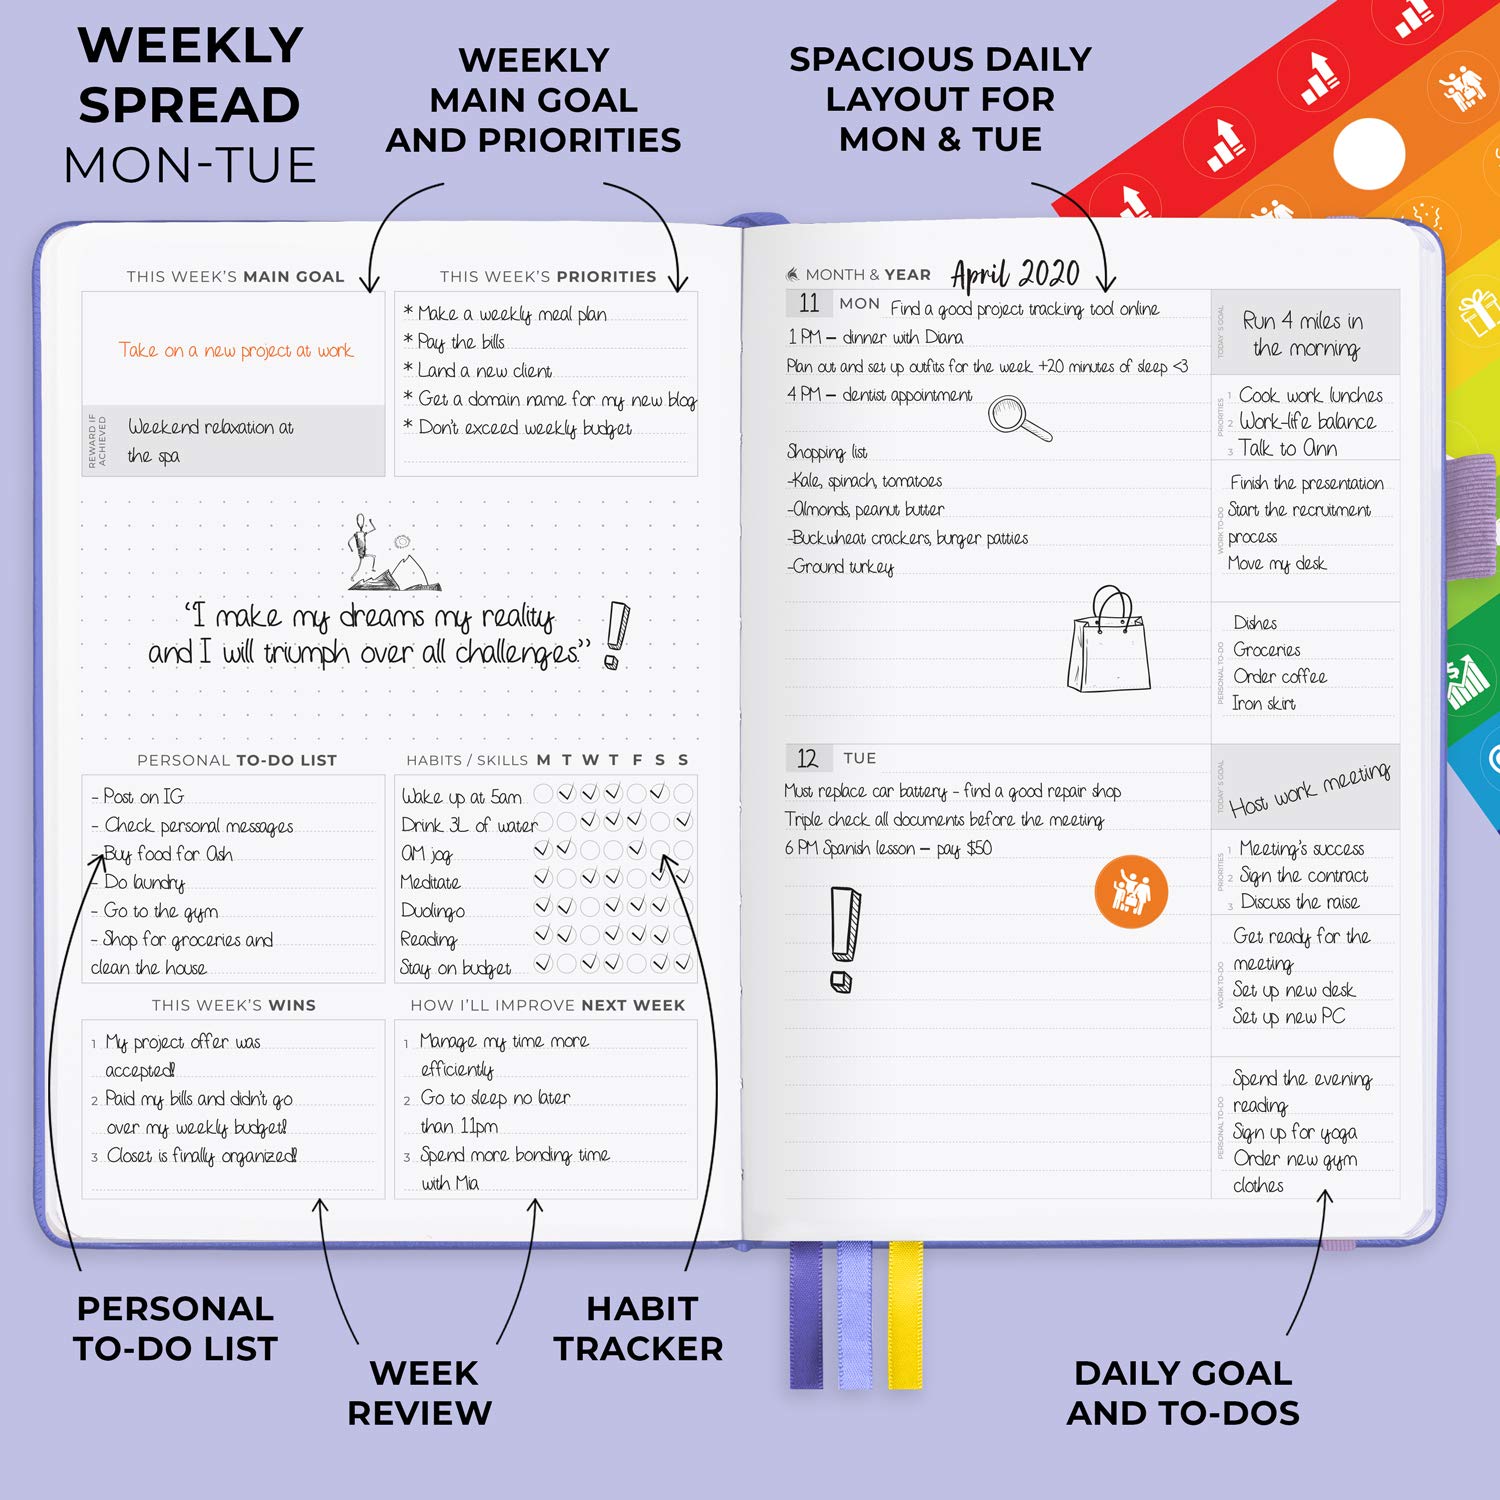 WEEKLY
SPREAD
MON-TUE
WEEKLY
MAIN GOAL
AND PRIORITIES
SPACIOUS DAILY
LAYOUT FOR
MON & TUE
THIS WEEK'S MAIN GOAL
Take on a new project at work
REWARD IF
ACHIEVED
Weekend relaxation at
the spa
THIS WEEK'S PRIORITIES
* Make a weekly meal plan
* Pay the bills
* Land a new client
* Get a domain name for my new blog
* Don't exceed weekly budget
"I make my dreams my reality
and I will triumph over all challenges."
!
PERSONAL TO-DO LIST
- Post on IG
- Check personal messages
- Buy food for Ash
- Do laundry
- Go to the gym
- Shop for groceries and
clean the house
HABITS / SKILLS M T W T F S S
Wake up at 5am
Drink 3L of water
AM jog
Meditate
Duolingo
Reading
Stay on budget
THIS WEEK'S WINS
1 My project offer was
accepted!
2 Paid my bills and didn't go
over my weekly budget!
3 Closet is finally organized!
HOW I'LL IMPROVE NEXT WEEK
1 Manage my time more
efficiently
2 Go to sleep no later
than 11pm
3 Spend more bonding time
with Mia
MONTH & YEAR April 2020
11 MON Find a good project tracking tool online
1 PM – dinner with Diana
Plan out and set up outfits for the week +20 minutes of sleep <3
4 PM – dentist appointment
Shopping list
-Kale, spinach, tomatoes
-Almonds, peanut butter
-Buckwheat crackers, burger patties
-Ground turkey
TODAY'S GOAL
Run 4 miles in
the morning
PRIORITIES
1 Cook work lunches
2 Work-life balance
3 Talk to Ann
WORK TO-DO
Finish the presentation
Start the recruitment
process
Move my desk
PERSONAL TO-DO
Dishes
Groceries
Order coffee
Iron skirt
12 TUE
Must replace car battery - find a good repair shop
Triple check all documents before the meeting
6 PM Spanish lesson – pay $50
!
TODAY'S GOAL
Host work meeting
PRIORITIES
1 Meeting's success
2 Sign the contract
3 Discuss the raise
WORK TO-DO
Get ready for the
meeting
Set up new desk
Set up new PC
PERSONAL TO-DO
Spend the evening
reading
Sign up for yoga
Order new gym
clothes
$
PERSONAL
TO-DO LIST
WEEK
REVIEW
HABIT
TRACKER
DAILY GOAL
AND TO-DOS